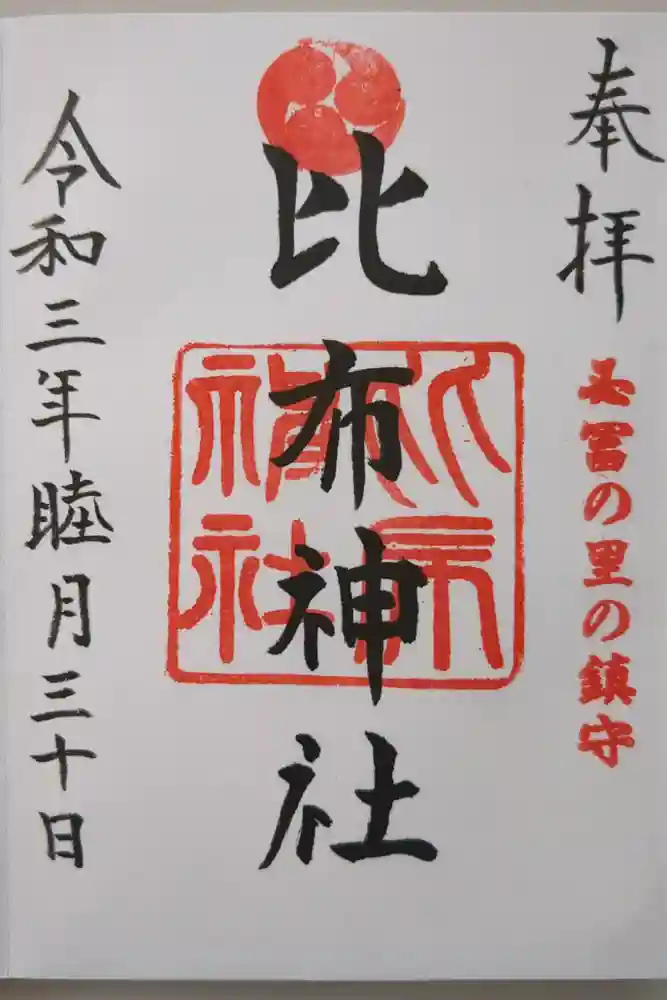 奉拝
冨の里の鎮守
比布神社
比布神社
令和三年睦月三十日